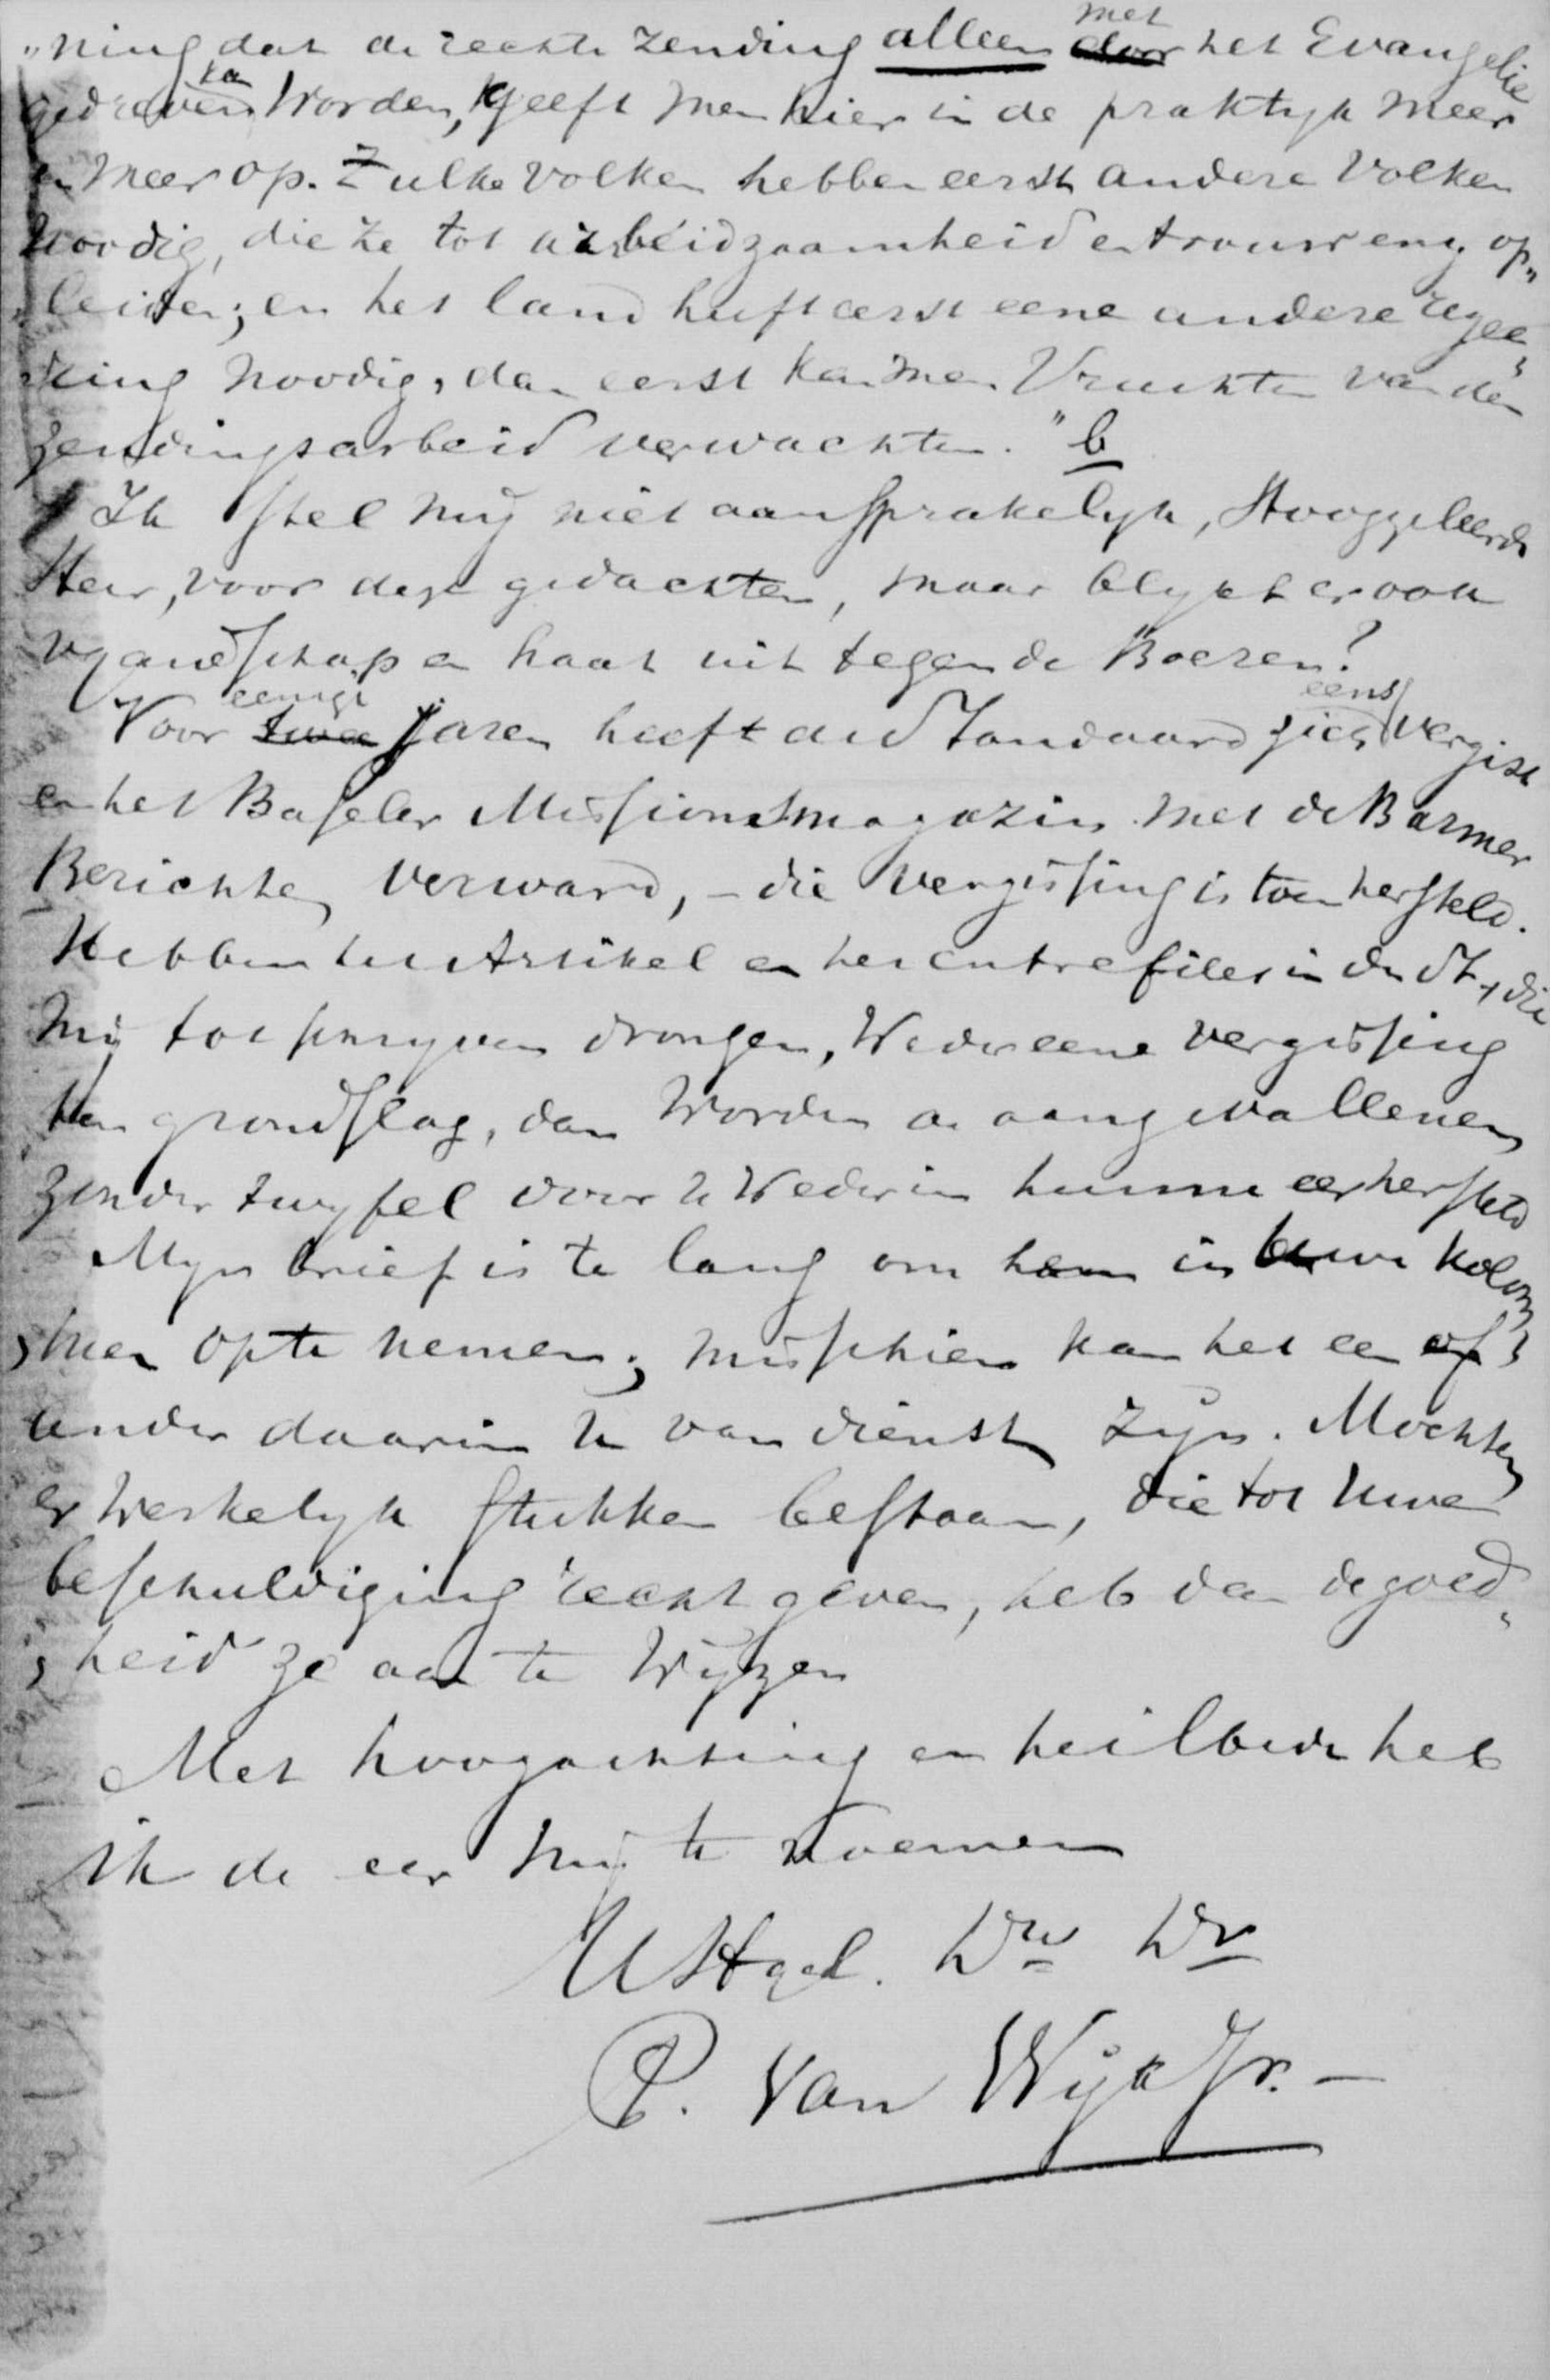 „ning dat de rechte zending alleen met het Evangelie
gedreven kan worden, geeft men hier in de praktijk meer
en meer op. Zulke volken hebben eerst andere volken
noodig, die ze tot arbeidzaamheid en trouw enz. op„
„leiden; en het land heeft eerst eene andere regee„
ring noodig, dan eerst kan men vruchten van den
zendingsarbeid verwachten." b
Ik stel mij niet aansprakelijk, Hooggeleerde
Heer, voor deze gedachten, maar blijkt er ook
vyandschap en haat uit tegen de Boeren?
Voor eenige jaren heeft de Standaard zich eens vergist
en het Baseler Missionsmagazin met de Barmer
Berichte verward, – die vergissing is toen hersteld.
Hebben het Artikel en het entrefilet in de St., die
mij tot schryven drongen, weder eene vergissing
ten grondslag, dan worden de aangevallenen
zonder twyfel door U weder in hunne eer hersteld
Myn brief is te lang om in uwe kolom„
„men op te nemen; misschien kan het een of
ander daarin U van dienst zijn. Mochten
er werkelyk stukken bestaan, die tot uwe
beschuldiging recht geven, heb dan de goed„
„heid ze aan te wijzen
Met hoogachting en heilbede heb
ik de eer mij te noemen
UHgel. Dw Dr
P. van Wijk Jr. –